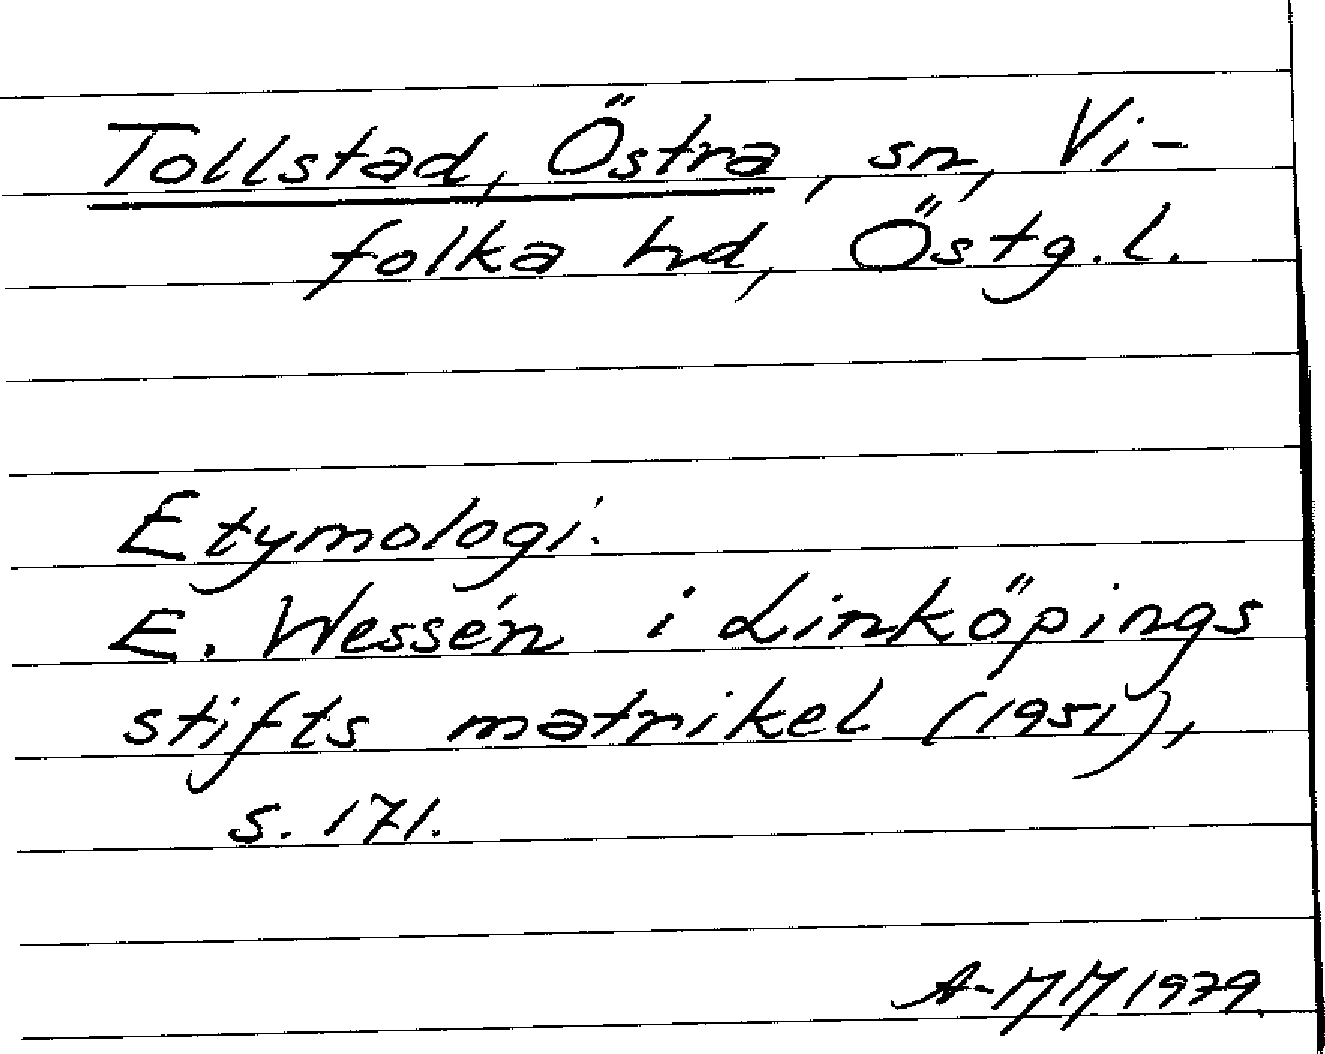 Tollstad, Östra, sn, Vi-
folka hd, Östg.l.
Etymologi:
E. Wessén i Linköpings
stifts matrikel (1951),
s. 171.
A-MM 1979.